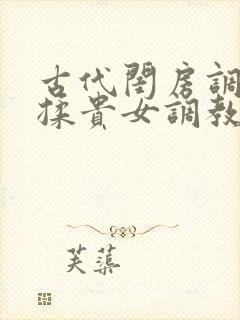 古代閨房調
揉貴女調教
芙蕖